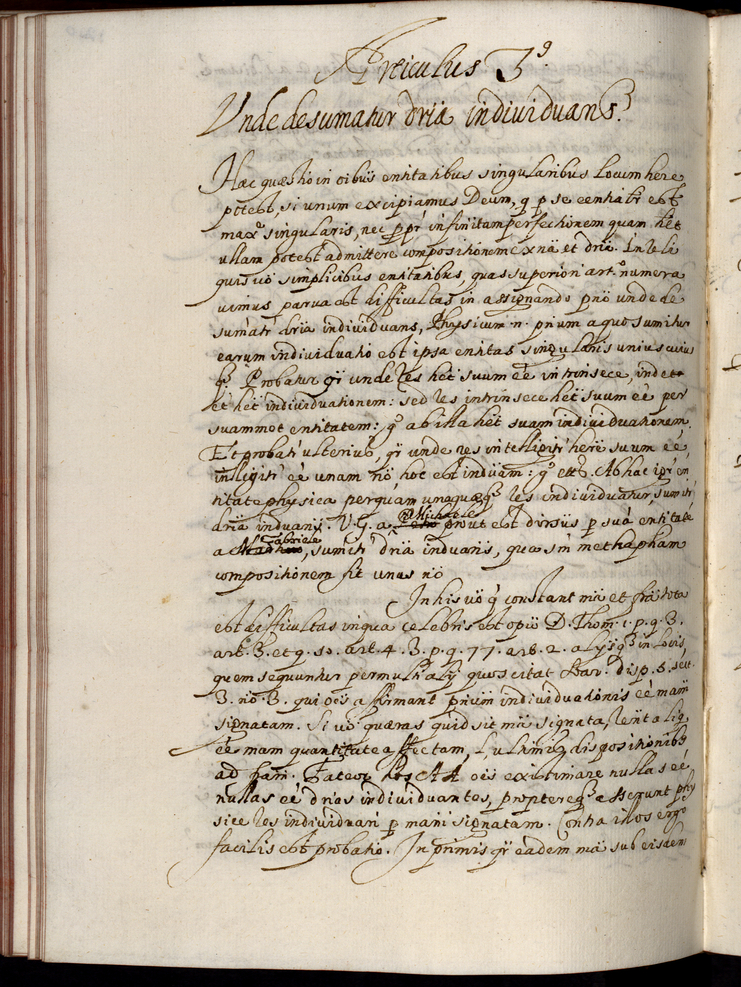 Articulus 3.º
Vnde desumatur dria individuans?
Hæc quæstio in oibus entitatibus singularibus locum here
potest, si unum excipiamus Deum, q p se eentiatr est
maxe singularis, nec ppr infinitam perfectionem quam het
ullam potest admittere compositionem ex nã et driã. In reli
quis uò simplicibus entitatibus, quas superiori art.º numera
uimus, parua est difficultas in assignando prio unde de
sumatr dria individuans, Physicum n. prium a quo sumitur
earum individuatio est ipsa entitas singularis unius cuius
q3. Probatur qr unde res het suum eē intrinsece, inde
et het individuationem: sed res intrinsece het suum eē per
suammet entitatem: gº ab illa het suam individuationem.
Et probatr ulterius, qr unde res intelligitr here suum eē
intligitr eē unam nō, hoc est induam: gº etc. Ab hac ipr en
titate physica per quam unaquæq3 res individuatur, sumitr
dria induans. V.G. a Michaele prout est dirsus p suā entitatē
a Gabriele, sumitr dria induans, quæ sm methapham
compositionem fit unus nō
In his uò q constant mā et frā tota
est difficultas in qua celebris est opio D. Thom. 1. p. q. 3.
art. 3. et q. 50. art. 4. 3. p. q. 77. art. 2. alysq3 in locis
quem sequuntur permulti alij quos citat Suar. disp. 5. sect.
3. nō. 3. qui oes affirmant prium individuationis eē mam
signatam. Si uò quæras quid sit mā signata,
eē mam quantitate affectam, l, ultimis dispositionibs
ad fram. Fateor hos AA. oes existimare nullas eē
nullas eē drias individuantes, propterea q3 asserunt phy
sice res individuari p mam signatam. Contra illos ergo
facilis est probatio. In primis qr eadem mā sub eisdem